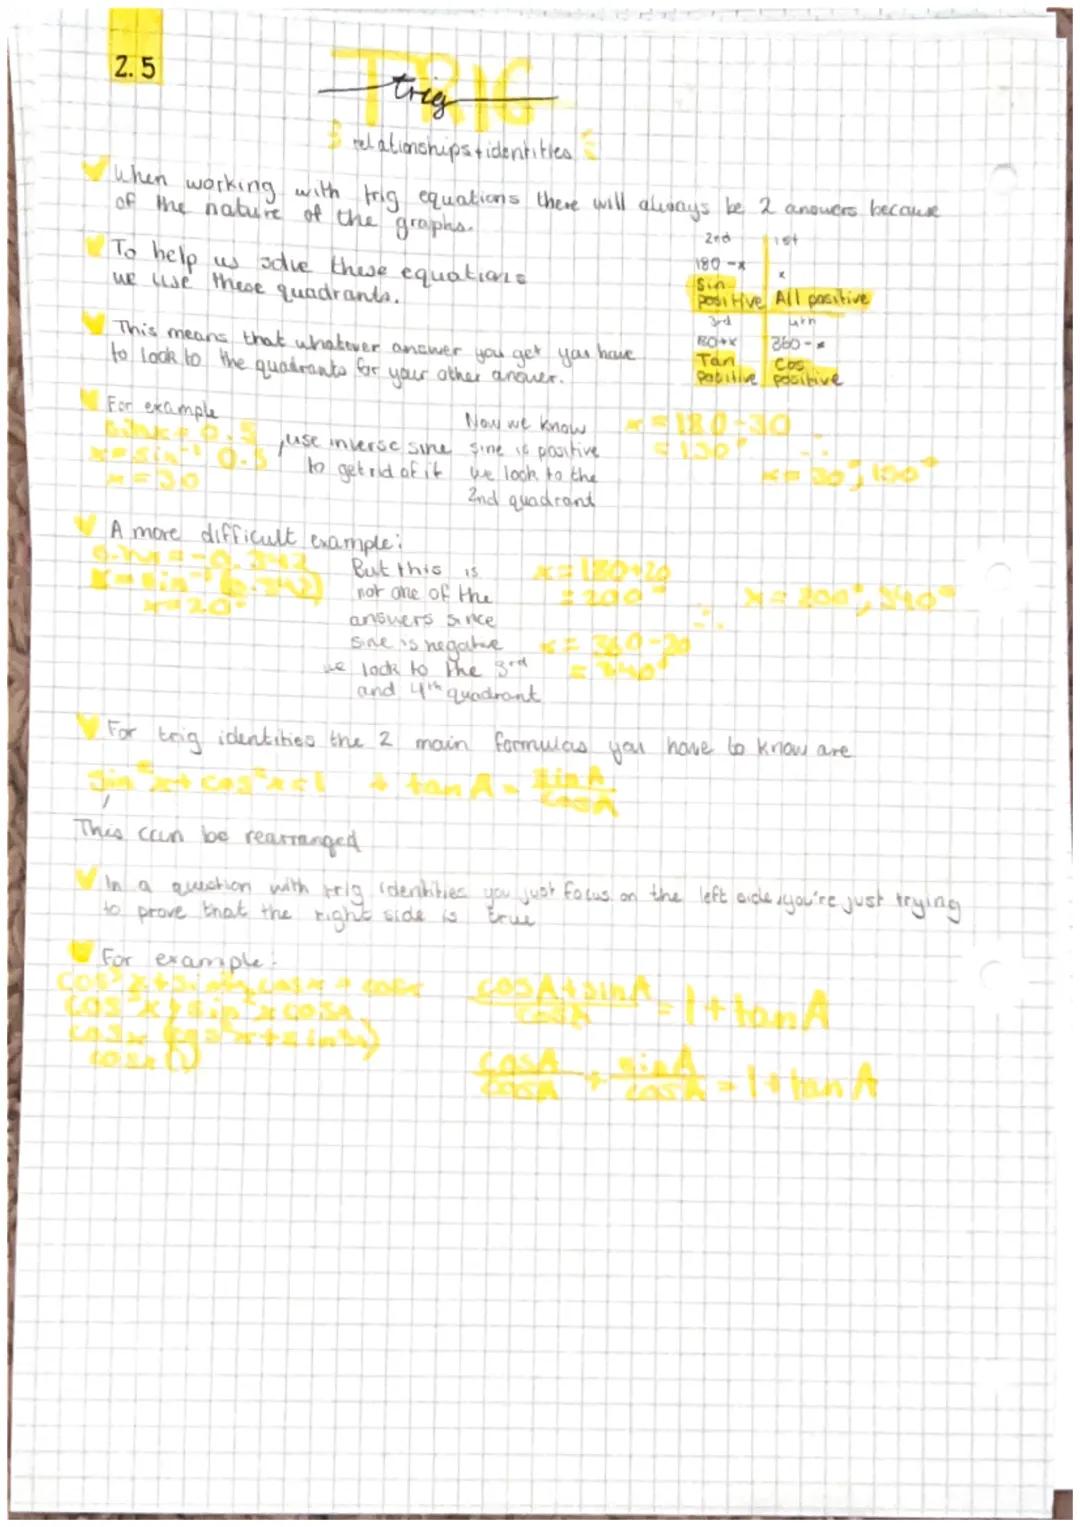 2.5
TRIG
trig
relationships + identities
When working with trig equations there will always be 2 answers because
of the nature of the graphs.
To help us solve these equations
we use these quadrants.
2nd 1st
180 - x x
Sin positive All positive
3rd 4th
180+x 360 - x
Tan positive Cos positive
This means that whatever answer you get you have
to look to the quadrants for your other answer.
For example
sinx = 0.5
x = sin⁻¹ 0.5
x = 30
, use inverse sine
to get rid of it
Now we know
sine is positive
we look to the
2nd quadrant
x = 180 - 30
= 150°
∴ x = 30°, 150°
A more difficult example:
sinx = -0.342
x = sin⁻¹ (0.342)
x = 20°
But this is
not one of the
answers since
sine is negative
we look to the 3rd
and 4th quadrant
x = 180+20
= 200°
x = 360 - 20
= 340°
∴ x = 200°, 340°
For trig identities the 2 main formulas you have to know are
sin²x + cos²x = 1 + tan A = sin A / cos A
This can be rearranged
In a question with trig identities you just focus on the left side, you're just trying
to prove that the right side is true
For example:
cos³x + sin²x cosx = cosx
cos³x + sin²x cosx
cosx (cos²x + sin²x)
cosx (1)
cosA + sinA / cosA = 1 + tan A
cosA / cosA + sinA / cosA = 1 + tan A